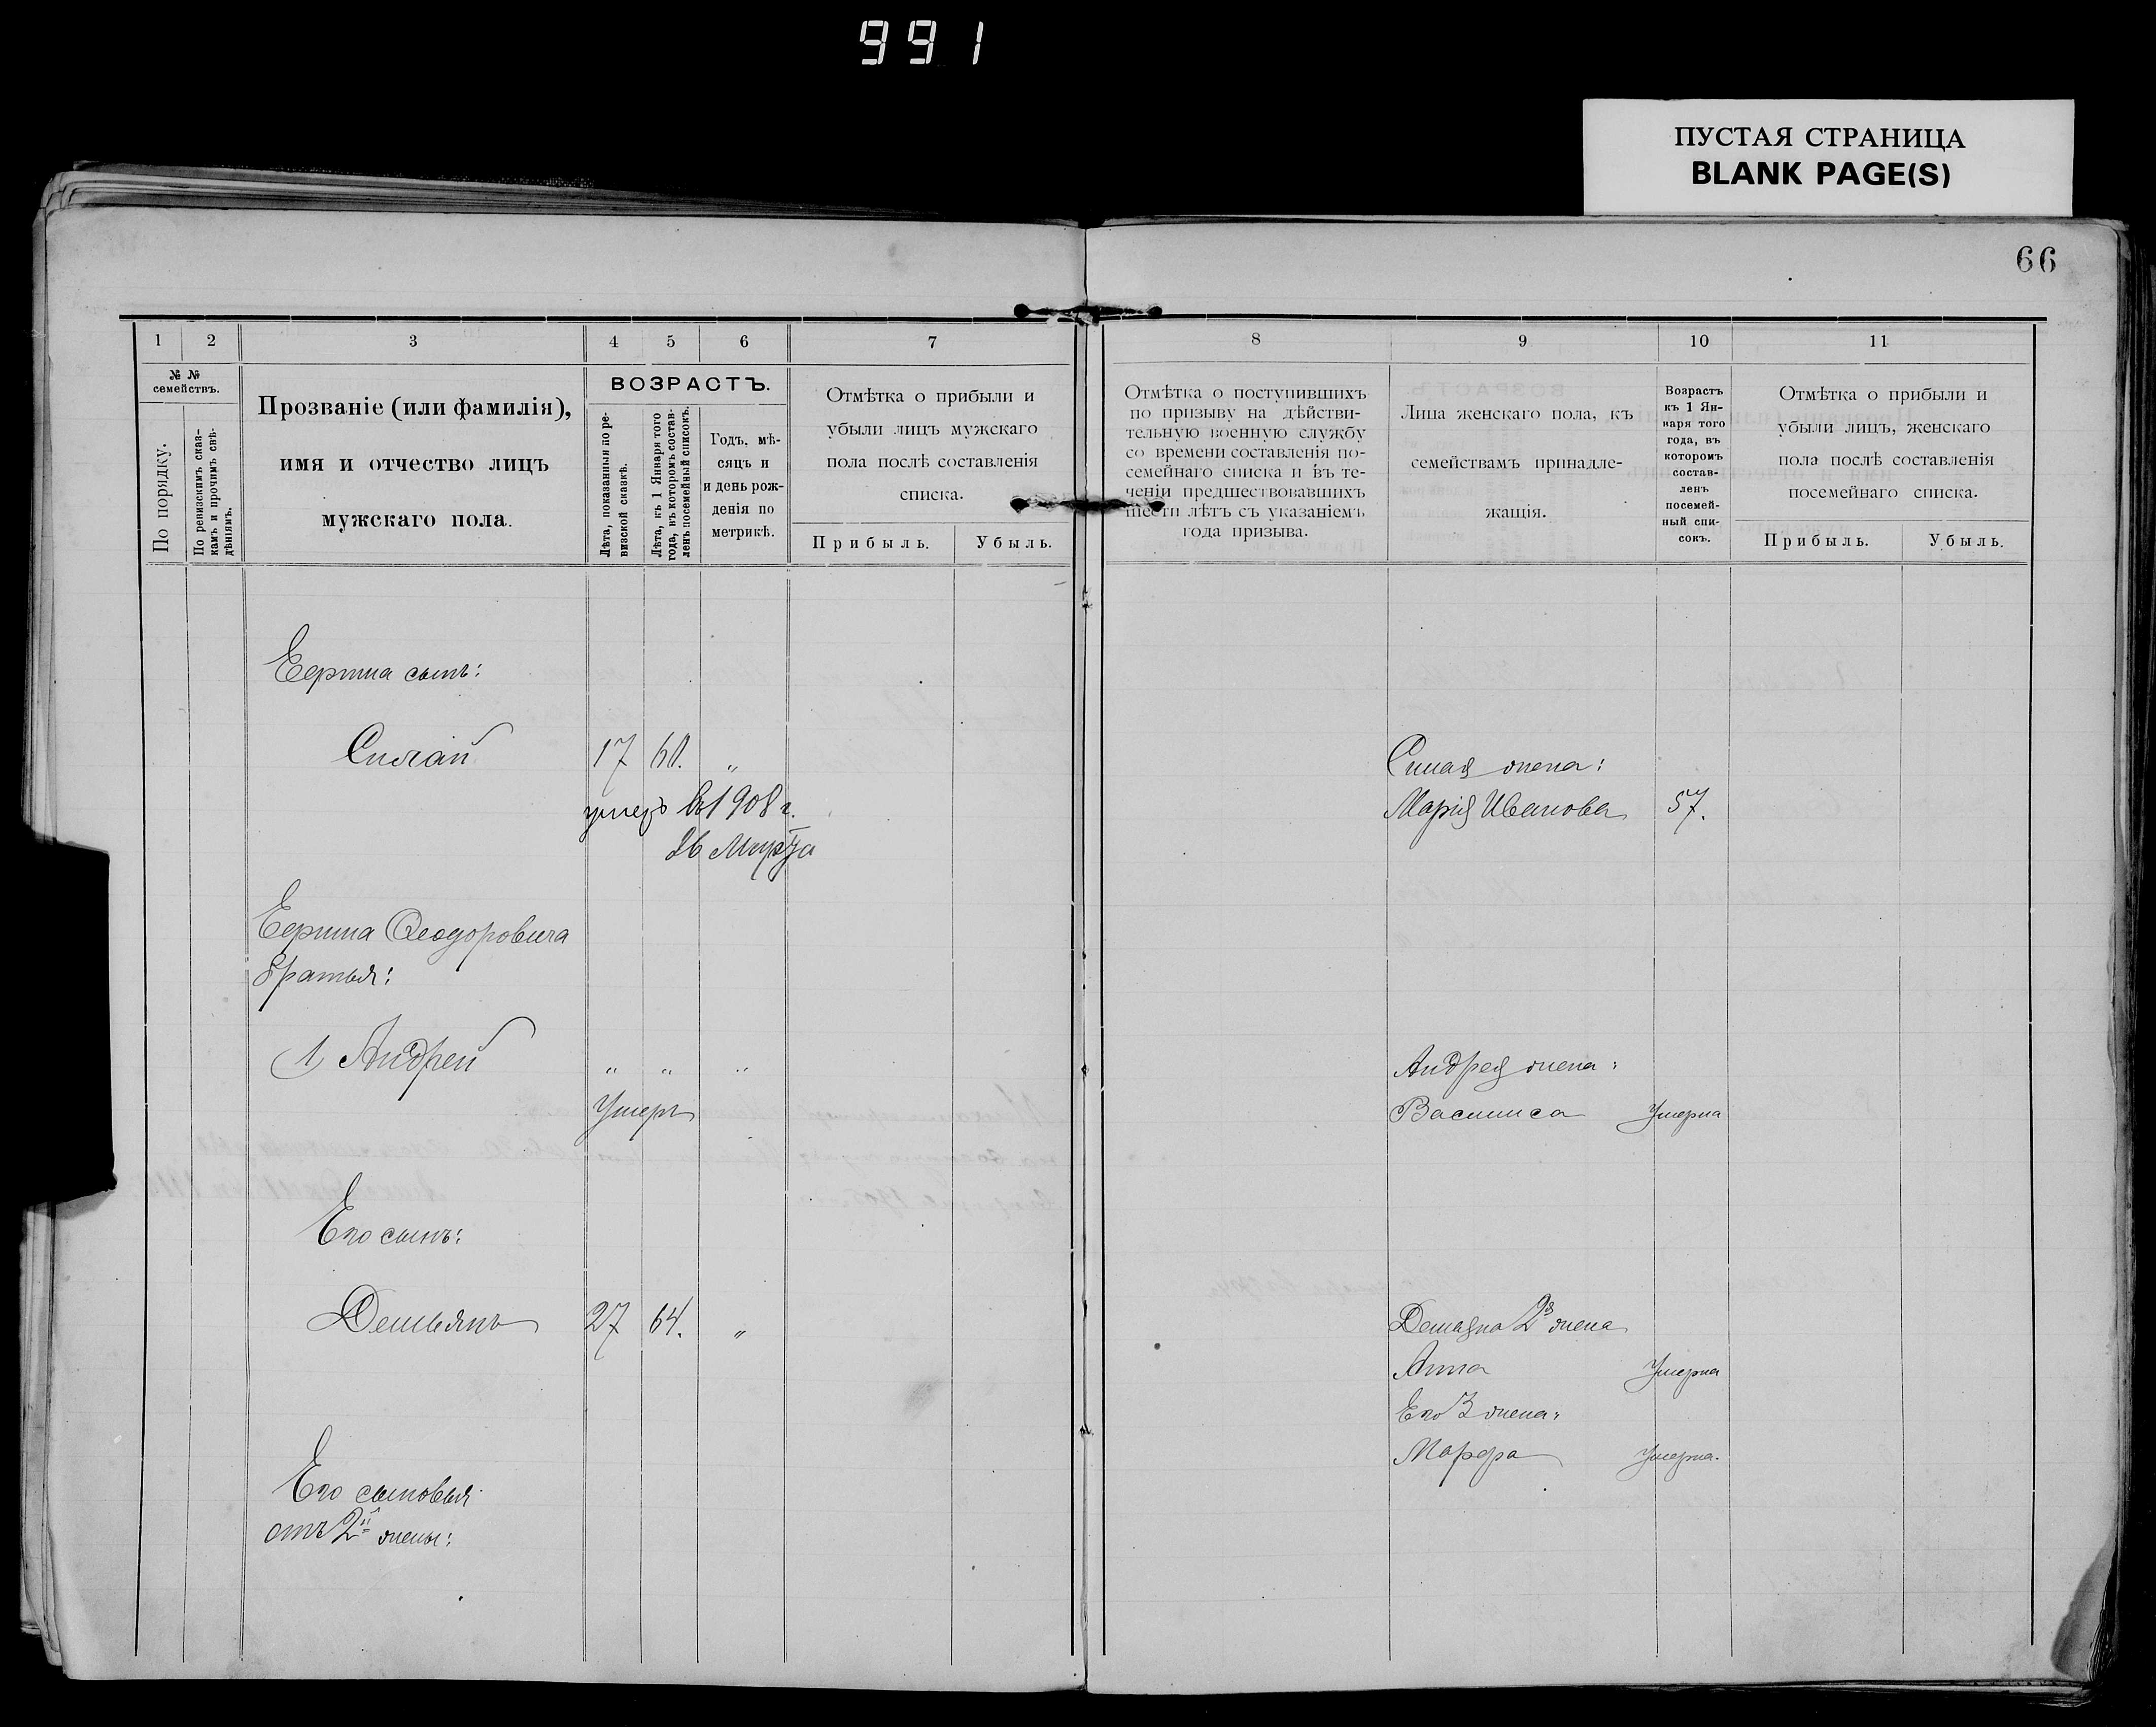 991
ПУСТАЯ СТРАНИЦА
BLANK PAGE(S)
66
1 2 3 4 5 6 7
№ №
семействъ.
По порядку.
По ревизскимъ сказ-
камъ и прочимъ свѣ-
дѣніямъ.
Прозваніе (или фамилія),
имя и отчество лицъ
мужскаго пола.
ВОЗРАСТЪ.
Лѣта, показанныя по ре-
визской сказкѣ.
Лѣта, къ 1 Января того
года, въ которомъ состав-
ленъ посемейный списокъ.
Годъ, мѣ-
сяцъ и
и день рож-
денія по
метрикѣ.
Отмѣтка о прибыли и
убыли лицъ мужскаго
пола послѣ составленія
списка.
Прибыль. Убыль.
сынъ:
17 60. "
умеръ въ 1908 г.
26 Марта
Ѳеодоровича
братья:
1) Андрей " " "
Умеръ
Его сынъ:
Демьянъ 27 64. "
Его сыновья
отъ 2й жены:
8 9 10 11
Отмѣтка о поступившихъ
по призыву на дѣйстви-
тельную военную службу
со времени составленія по-
семейнаго списка и въ те-
ченіи предшествовавшихъ
шести лѣтъ съ указаніемъ
года призыва.
Лица женскаго пола, къ
семействамъ принадле-
жащія.
Возрастъ
къ 1 Ян-
варя того
года, въ
которомъ
состав-
ленъ
посемей-
ный спи-
сокъ.
Отмѣтка о прибыли и
убыли лицъ, женскаго
пола послѣ составленія
посемейнаго списка.
Прибыль. Убыль.
жена:
Марія Иванова 57.
Андрея жена:
Василиса Умерла
Демьяна 2я жена
Анна Умерла
Его 3 жена:
Марфа Умерла.